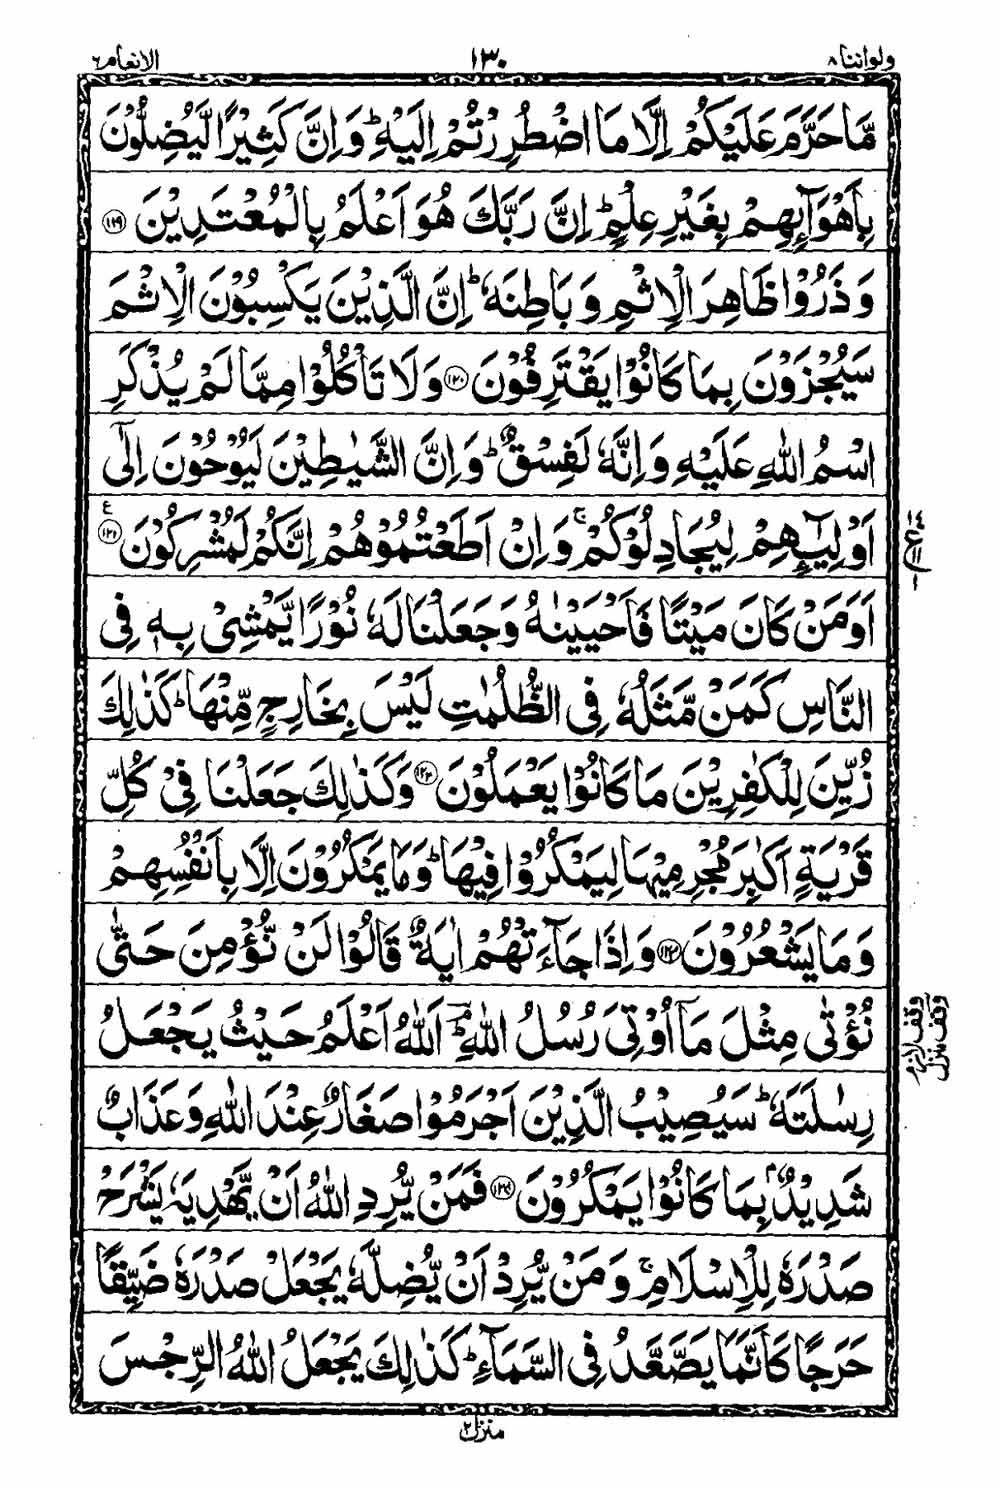 ولواننا ٨ ١٣٠ الانعام ٦
مَّا حَرَّمَ عَلَيْكُمْ اِلَّا مَا اضْطُرِرْتُمْ اِلَيْهِ ؕ وَ اِنَّ كَثِيْرًا لَّيُضِلُّوْنَ
بِاَهْوَآئِهِمْ بِغَيْرِ عِلْمٍ ؕ اِنَّ رَبَّكَ هُوَ اَعْلَمُ بِالْمُعْتَدِيْنَ ﴿١١٩﴾
وَ ذَرُوْا ظَاهِرَ الْاِثْمِ وَ بَاطِنَهٗ ؕ اِنَّ الَّذِيْنَ يَكْسِبُوْنَ الْاِثْمَ
سَيُجْزَوْنَ بِمَا كَانُوْا يَقْتَرِفُوْنَ ﴿١٢٠﴾ وَ لَا تَاْكُلُوْا مِمَّا لَمْ يُذْكَرِ
اسْمُ اللّٰهِ عَلَيْهِ وَ اِنَّهٗ لَفِسْقٌ ؕ وَ اِنَّ الشَّيٰطِيْنَ لَيُوْحُوْنَ اِلٰٓى
اَوْلِيٰٓـِٕهِمْ لِيُجَادِلُوْكُمْ ۚ وَ اِنْ اَطَعْتُمُوْهُمْ اِنَّكُمْ لَمُشْرِكُوْنَ ﴿١٢١﴾ ع
اَوَ مَنْ كَانَ مَيْتًا فَاَحْيَيْنٰهُ وَ جَعَلْنَا لَهٗ نُوْرًا يَّمْشِيْ بِهٖ فِي
النَّاسِ كَمَنْ مَّثَلُهٗ فِي الظُّلُمٰتِ لَيْسَ بِخَارِجٍ مِّنْهَا ؕ كَذٰلِكَ
زُيِّنَ لِلْكٰفِرِيْنَ مَا كَانُوْا يَعْمَلُوْنَ ﴿١٢٢﴾ وَ كَذٰلِكَ جَعَلْنَا فِيْ كُلِّ
قَرْيَةٍ اَكٰبِرَ مُجْرِمِيْهَا لِيَمْكُرُوْا فِيْهَا ؕ وَ مَا يَمْكُرُوْنَ اِلَّا بِاَنْفُسِهِمْ
وَ مَا يَشْعُرُوْنَ ﴿١٢٣﴾ وَ اِذَا جَآءَتْهُمْ اٰيَةٌ قَالُوْا لَنْ نُّؤْمِنَ حَتّٰى
نُؤْتٰى مِثْلَ مَاۤ اُوْتِيَ رُسُلُ اللّٰهِ ۘؔ اَللّٰهُ اَعْلَمُ حَيْثُ يَجْعَلُ
رِسٰلَتَهٗ ؕ سَيُصِيْبُ الَّذِيْنَ اَجْرَمُوْا صَغَارٌ عِنْدَ اللّٰهِ وَ عَذَابٌ
شَدِيْدٌۢ بِمَا كَانُوْا يَمْكُرُوْنَ ﴿١٢٤﴾ فَمَنْ يُّرِدِ اللّٰهُ اَنْ يَّهْدِيَهٗ يَشْرَحْ
صَدْرَهٗ لِلْاِسْلَامِ ۚ وَ مَنْ يُّرِدْ اَنْ يُّضِلَّهٗ يَجْعَلْ صَدْرَهٗ ضَيِّقًا
حَرَجًا كَاَنَّمَا يَصَّعَّدُ فِي السَّمَآءِ ؕ كَذٰلِكَ يَجْعَلُ اللّٰهُ الرِّجْسَ
وقف لازم
وقف منزل
منزل ٢